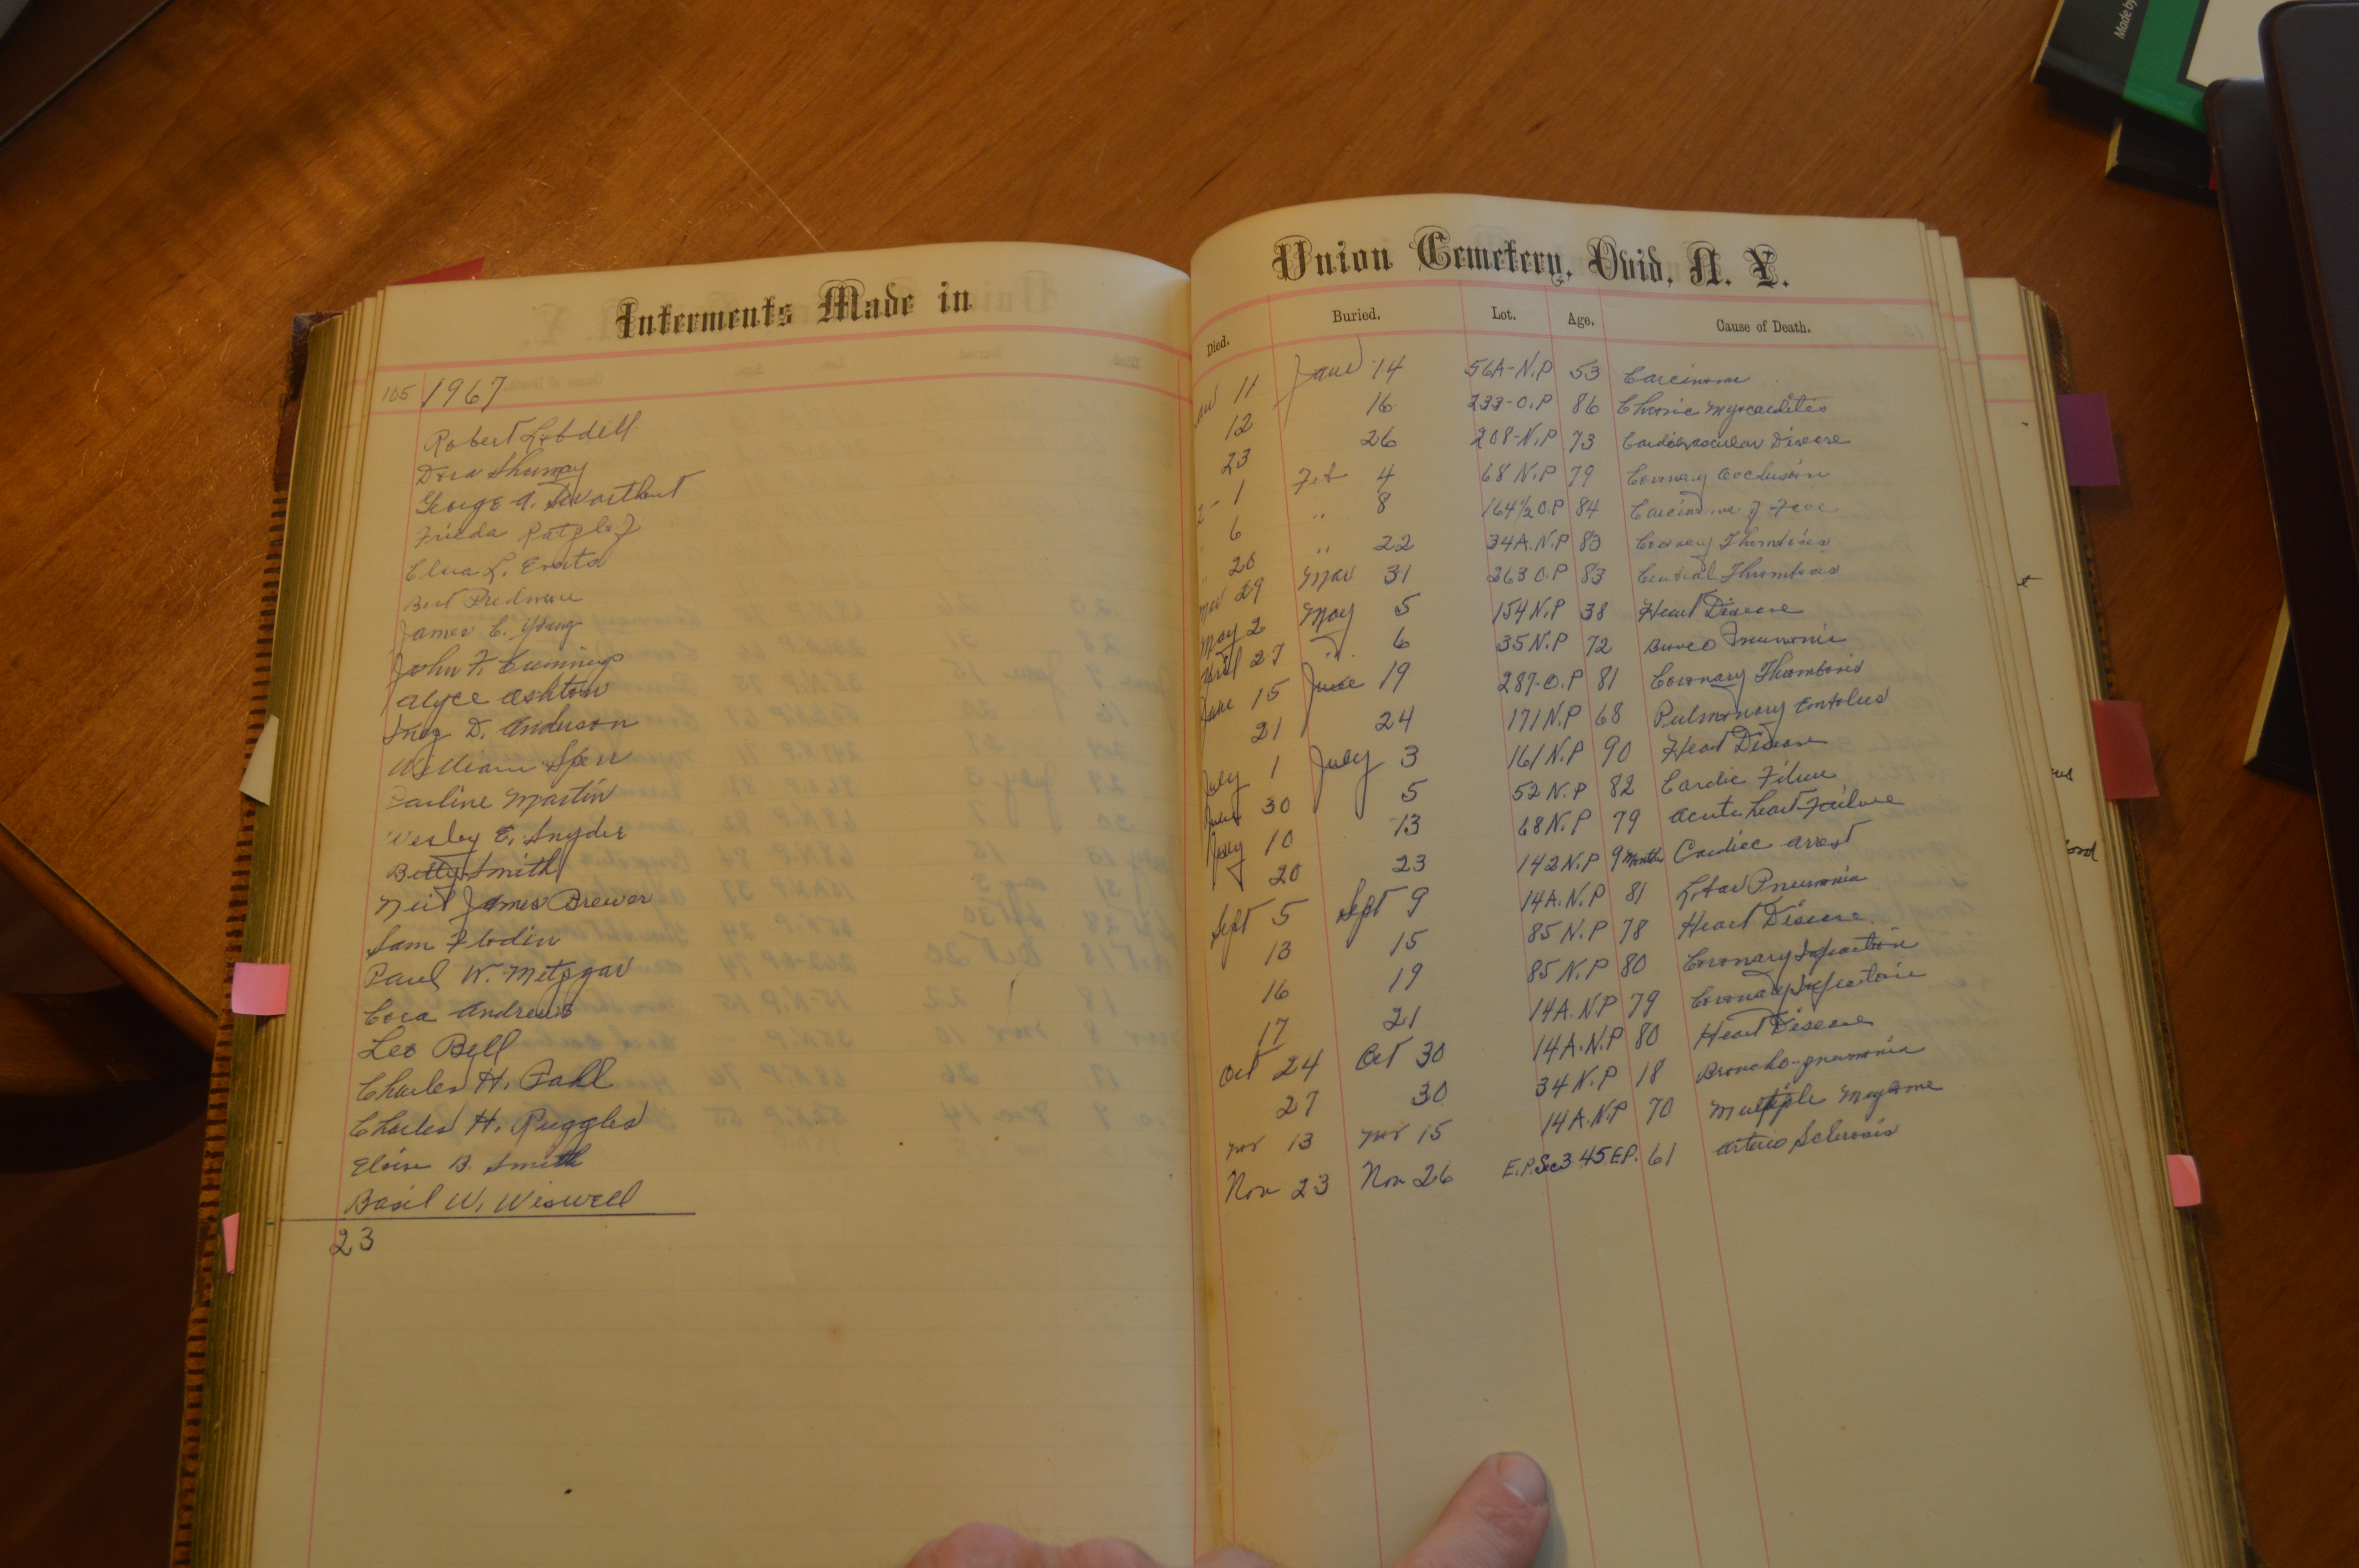 Made by
Interments Made in
Union Cemetery, Ovid, N. Y.
Died. Buried. Lot. Age. Cause of Death.
105 1967
Robert Lobdell
Dora Shumay
George A. Swarthout
Frieda
Elva L.
Bert Predmore
James C. Young
John F. Cummings
Alyce Ashton
Inez D. Anderson
William Sperr
Pauline Martin
Wesley E. Snyder
Betty Smith
Neil James Brewer
Sam Flodin
Paul W. Metzgar
Cora Andrews
Leo Bell
Charles H. Pahl
Charles H. Ruggles
Eloise B. Smith
Basil W. Wiswell
23
11 Jan 14 56A-N.P 53 Carcinoma
12 16 233-O.P 86 Chronic Myocarditis
23 26 208-N.P 73 Cardiovascular Disease
1 Feb 4 68 N.P 79 Coronary Occlusion
6 " 8 164½ O.P 84 Carcinoma of Face
" 20 " 22 34A.N.P 83 Coronary Thrombosis
Mar 29 Mar 31 263 O.P 83 Thrombosis
May 2 May 5 154 N.P 38 Heart Disease
April 27 " 6 35 N.P 72 Pneumonia
June 15 June 19 287-O.P 81 Coronary Thombosis
21 24 171 N.P 68 Pulmonary Embolus
July 1 July 3 161 N.P 90 Heart Disease
June 30 5 52 N.P 82 Cardic
July 10 13 68 N.P 79 Acute heart Failure
20 23 142 N.P 9 Months Cardiac arrest
Sept 5 Sept 9 14A.N.P 81 Lobar Pneumonia
13 15 85 N.P 78 Heart Disease
16 19 85 N.P 80 Coronary
17 21 14A.N.P 79 Coronary
Oct 24 Oct 30 14A.N.P 80 Heart Disease
27 30 34 N.P 18 Broncho-pneumonia
Nov 13 Nov 15 14A.N.P 70 Multiple
Nov 23 Nov 26 E.P.Sec3 45.E.P. 61 Arterio Sclerosis